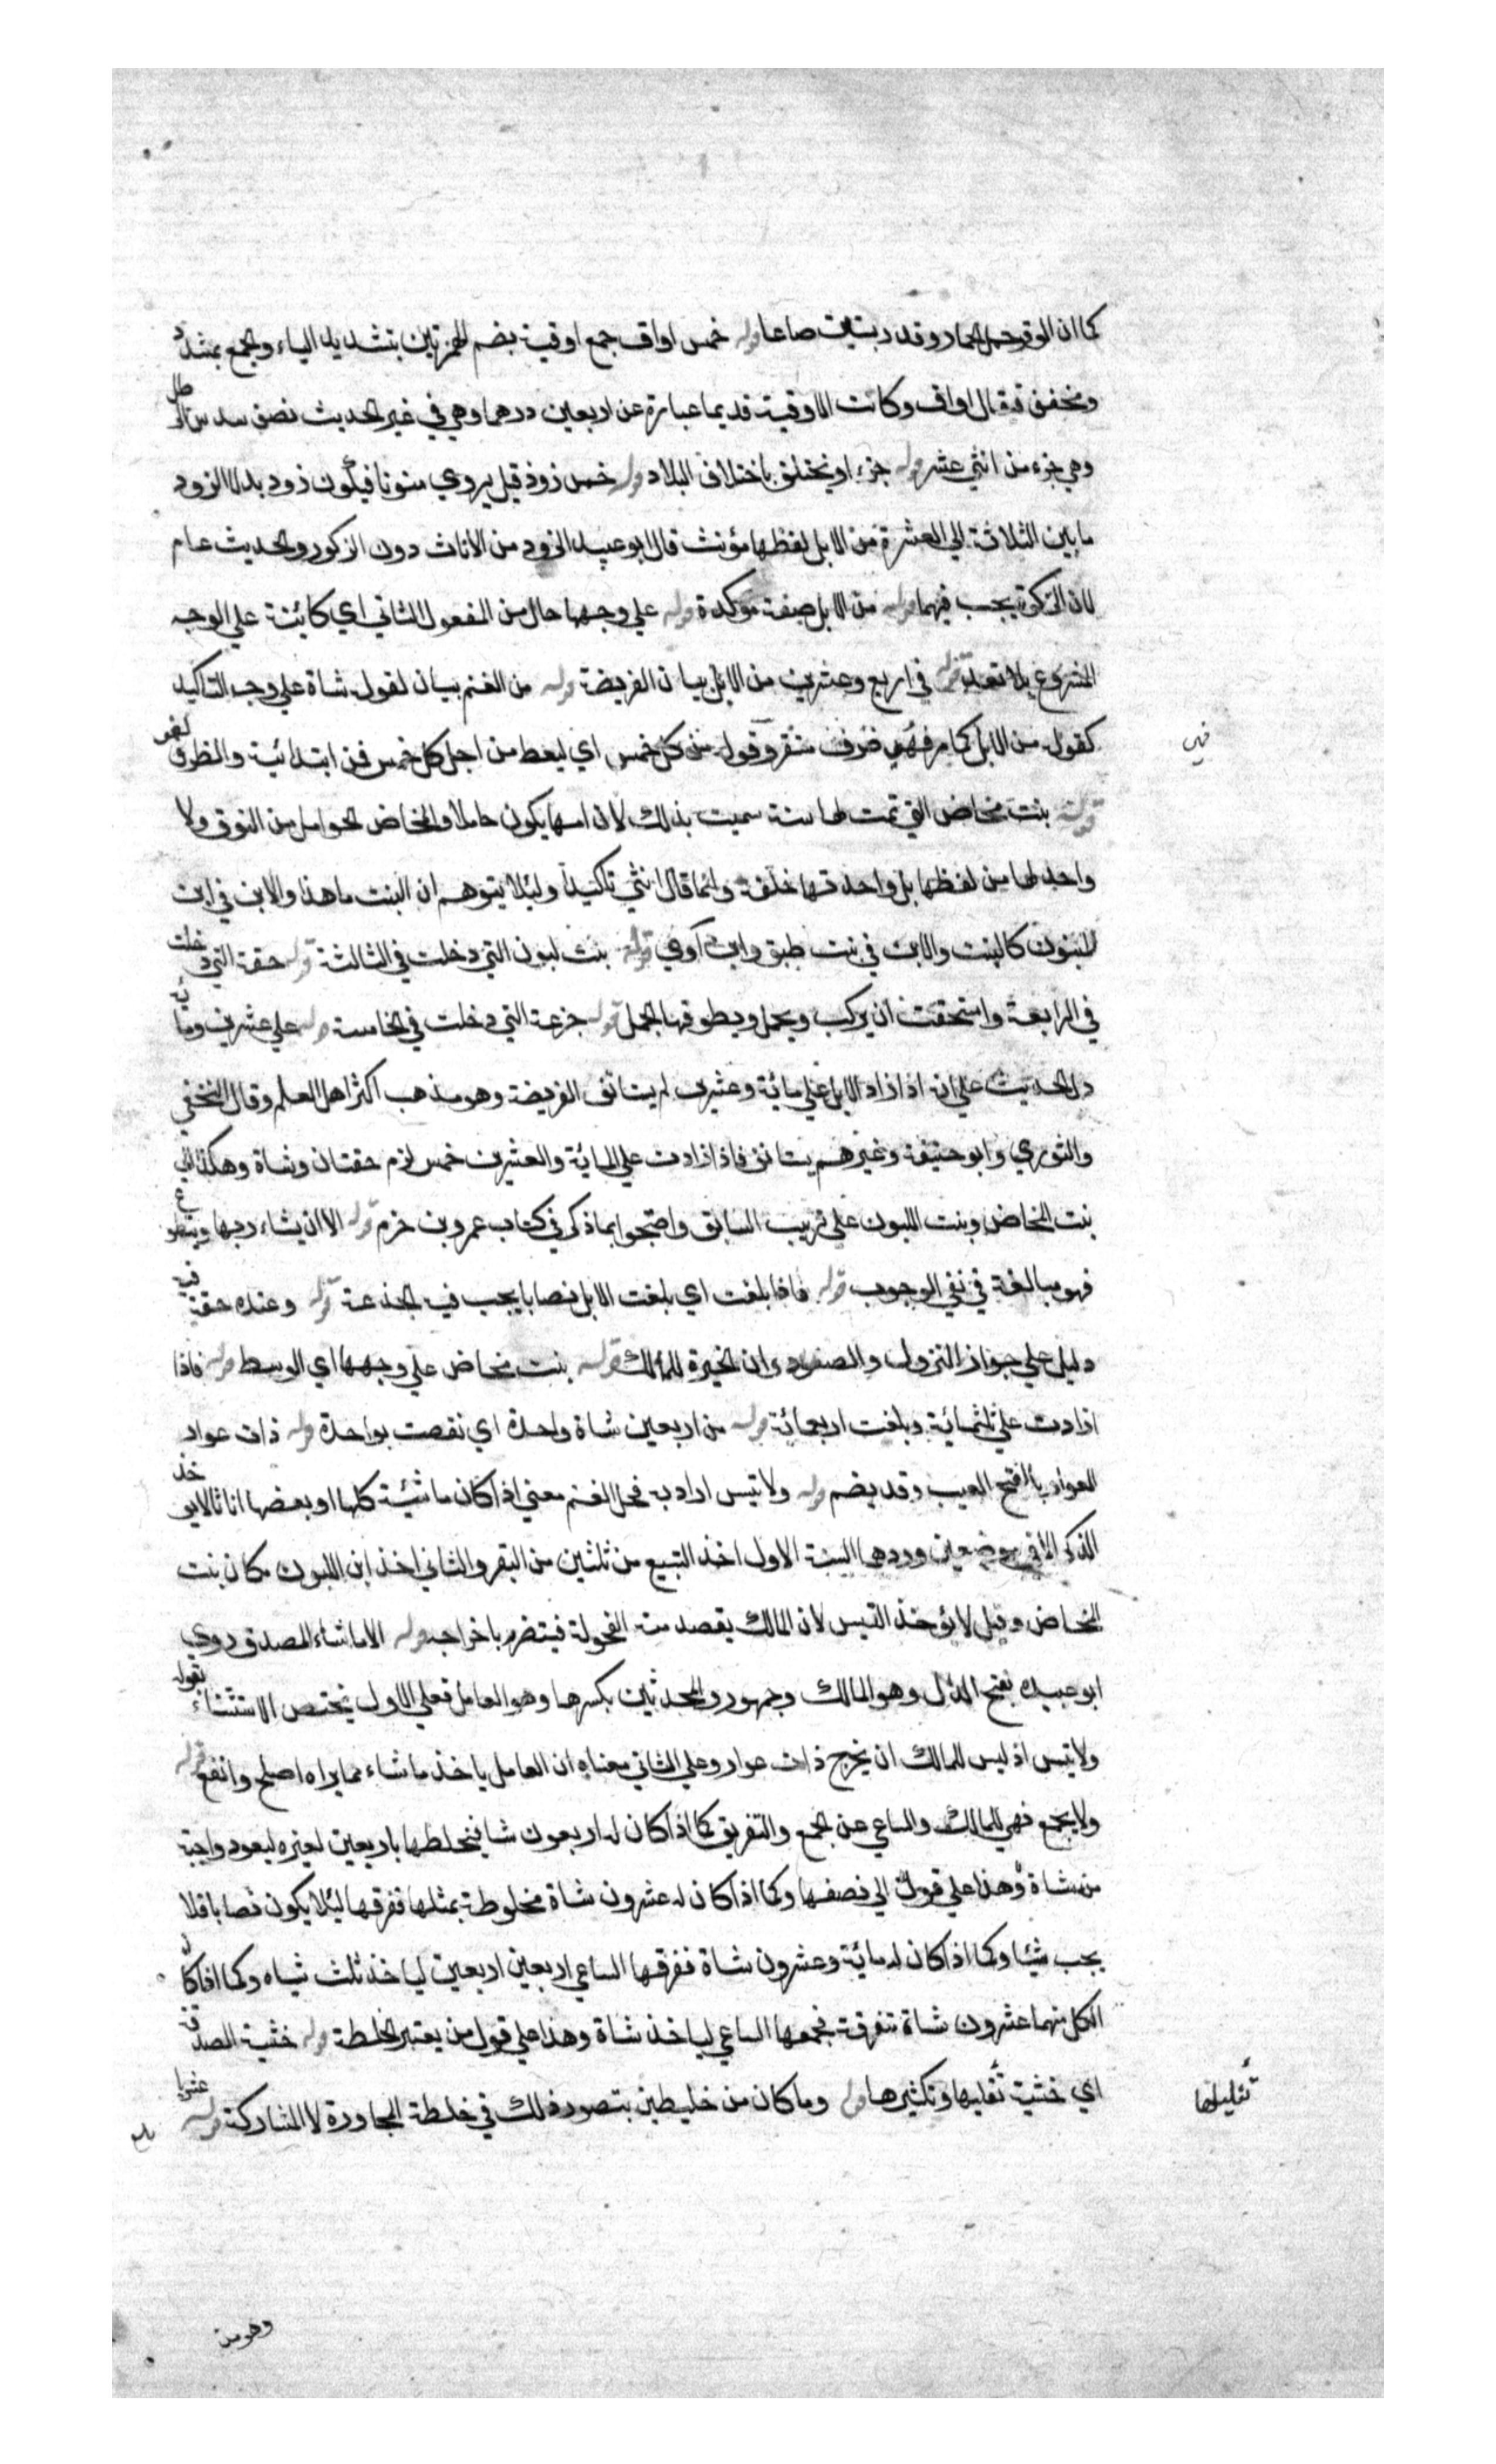 كما ان الوقر حمل الحمار وقدر بستين صاعا قوله خمس اواق جمع اوقية بضم الهمزتين بتشديد الياء والجمع بمشدد
ومخفف فيقال اواق وكانت الاوقية قديما عبارة عن اربعين درهما وهي في غير الحديث نصف سدس الرطل
وهي جزء من اثني عشر قوله جزء او يختلف باختلاف البلاد قوله خمس ذوذ قيل يروي منونا فيكون ذود بدلا الزود
ما بين الثلاثة الي العشرة من الابل لفظها مؤنث قال ابو عبيد الزود من الاناث دون الزكور والحديث عام
لان الزكوة يجب فيهما قوله من الابل صفة مؤكدة قوله علي وجهها حال من المفعول الثاني اي كائنة علي الوجه
المشروع بلا تعد قوله في اربع وعشرين من الابل بيان الفريضة قوله من الغنم بيان لقوله شاة علي وجه التاكيد
كقوله من الابل كما مر فهي ظرف مستقر وقوله من كل خمس اي ليعط من اجل كل خمس فمن ابتدائية والظرف لغو
فهي
قوله بنت مخاض التي تمت لها سنة سميت بذلك لان امها يكون حاملا والمخاض الحوامل من النوق ولا
واحد لها من لفظها بل واحدتها خلفة وانما قال انثي تاكيدا ولئلا يتوهم ان البنت ما هنا والابن في ابن
اللبون كالبنت والابن في بنت طبق وابن آوي قوله بنت لبون التي دخلت في الثالثة قوله حقة التي دخلت
في الرابعة واستحقت ان يركب ويحمل ويطوقها الجمل قوله جزعة التي دخلت في الخامسة قوله علي عشرين ومائة
دل الحديث علي انه اذا زاد الابل علي مائة وعشرين لم يستانف الفريضة وهو مذهب اكثر اهل العلم وقال النخعي
والثوري وابو حنيفة وغيرهم يستانف فاذا زادت علي المائة والعشرين خمس لزم حقتان وشاة وهكذا الي
بنت المخاض وبنت اللبون علي ترتيب السابق واحتجوا بما ذكر في كتاب عمرو بن حزم قوله الا ان يشاء ربها ويتطوع
فهو مبالغة في نفي الوجوب قوله فاذا بلغت اي بلغت الابل نصابا يجب فيه الجذعة قوله وعنده حقة فيه
دليل علي جواز النزول والصعود وان الخيرة للمالك قوله بنت مخاض علي وجهها اي الوسط قوله فاذا
ازادت علي ثلثمائة وبلغت اربعمائة قوله من اربعين شاة واحدة اي نقصت بواحدة قوله ذات عوار
العوار بالفتح العيب وقد يضم قوله ولا تيس اراد به فحل الغنم معني اذا كان ماشية كلها او بعضها اناثا لا يوخذ
الذكر الا في موضعين وردهما السنة الاول اخذ التبيع من ثلثين من البقر والثاني اخذ ابن اللبون مكان بنت
المخاض وقيل لا يؤخذ التيس لان المالك يقصد منه الفحولة فيتضرر باخراجه قوله الا ما شاء المصدق روي
ابو عبيده بفتح الدال وهو المالك وجمهور المحدثين بكسرها وهو العامل فعلي الاول يختص الاستثناء بقوله
ولا تيس اذ ليس للمالك ان يخرج ذات عوار وعلي الثاني معناه ان العامل ياخذ ما شاء مما يراه اصلح وانفع قوله
ولا يجمع فهي للمالك والساعي عن الجمع والتفريق كما اذا كان له اربعون شا فيخلطها باربعين لغيره ليعود واجبة
من شاة وهذا علي قول الي نصفها وكما اذا كان له عشرون شاة مخلوطة بمثلها ففرقها ليلا يكون نصابا فلا
يجب شيئا وكما اذا كان له مائة وعشرون شاة ففرقها الساعي اربعين اربعين لياخذ ثلث شياه وكما اذا كان
لكل منهما عشرون شاة متفرقة فجمعها الساعي لياخذ شاة وهذا علي قول من يعتبر الخلطة قوله خشية الصدقة
اي خشية تقليها وتكثيرها قوله وما كان من خليطين يتصور ذلك في خلطة المجاورة لا المشاركة قوله عشريا
تقليلها
وهو من